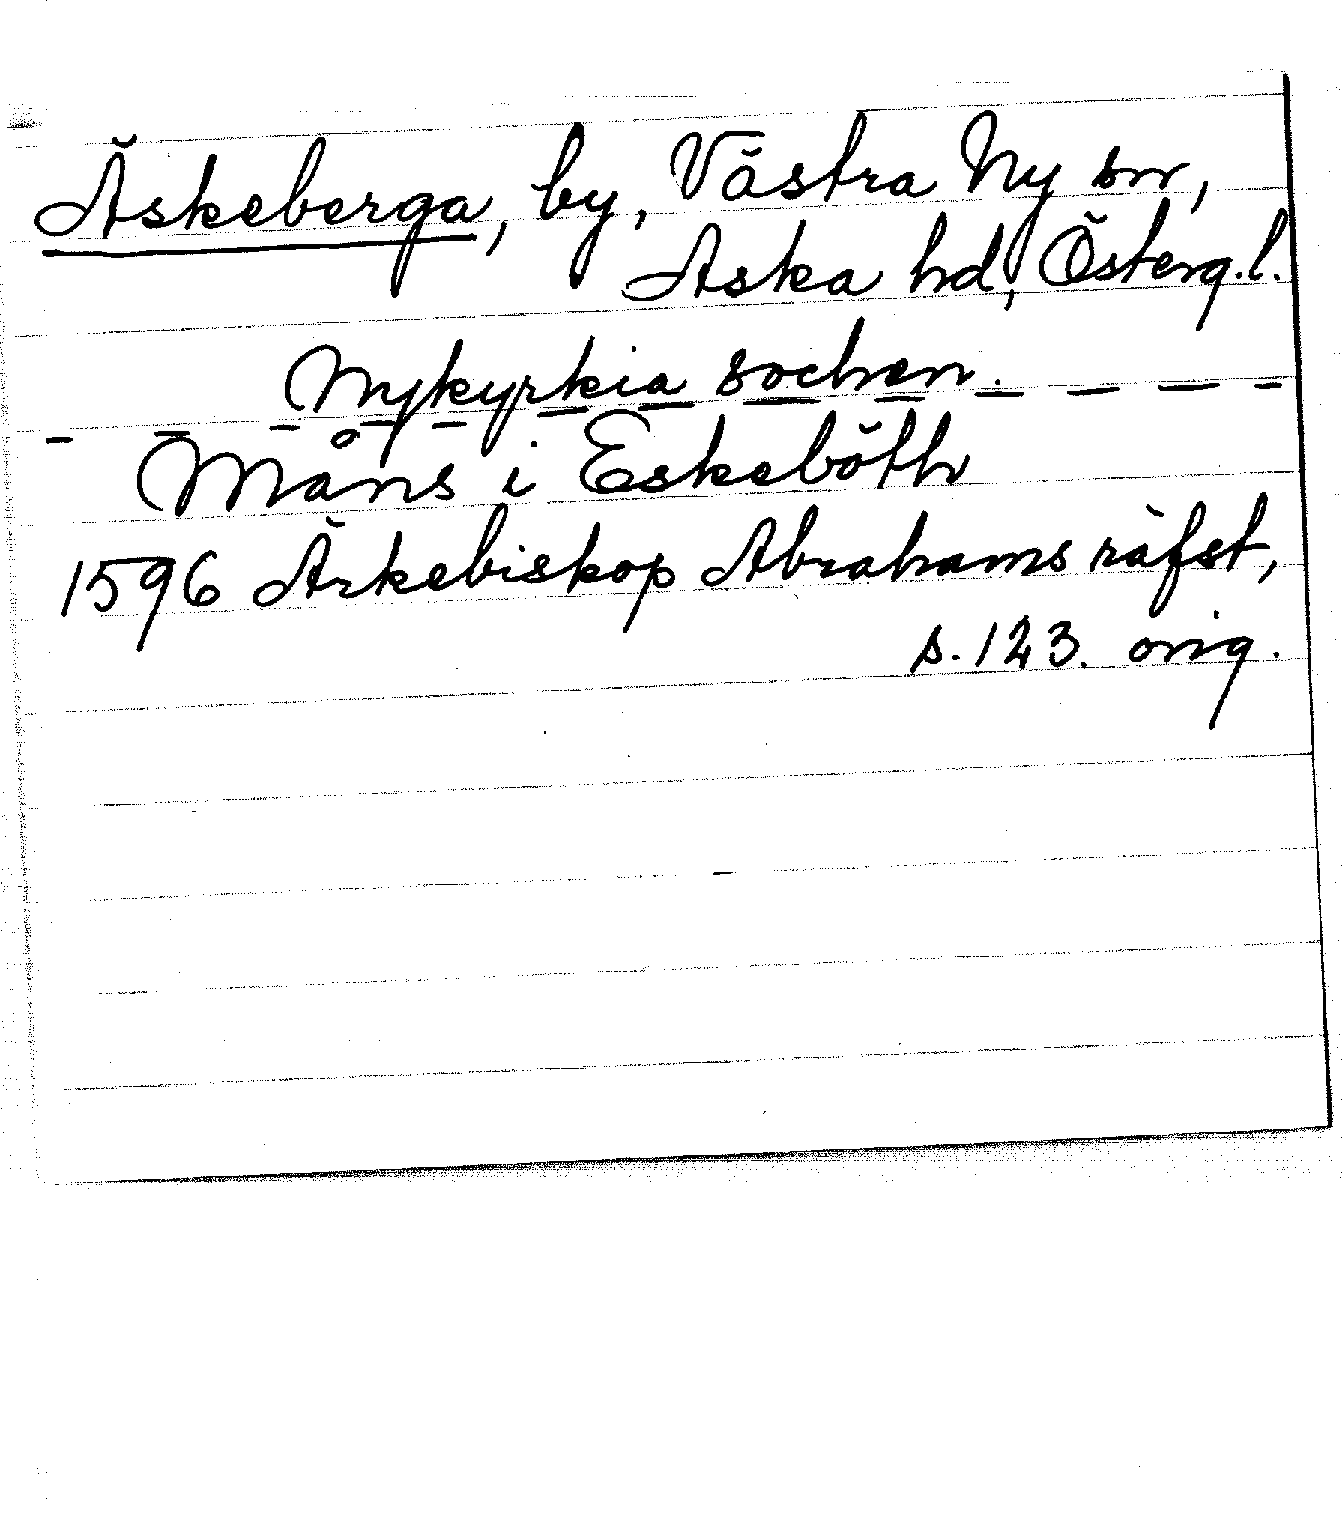 Äskeberga, by, Västra Ny sn,
Aska hd, Österg.l.
Nykyrkia sochen.
Måns i Eskebōth
1596 Ärkebiskop Abrahams räfst,
s. 123. orig.